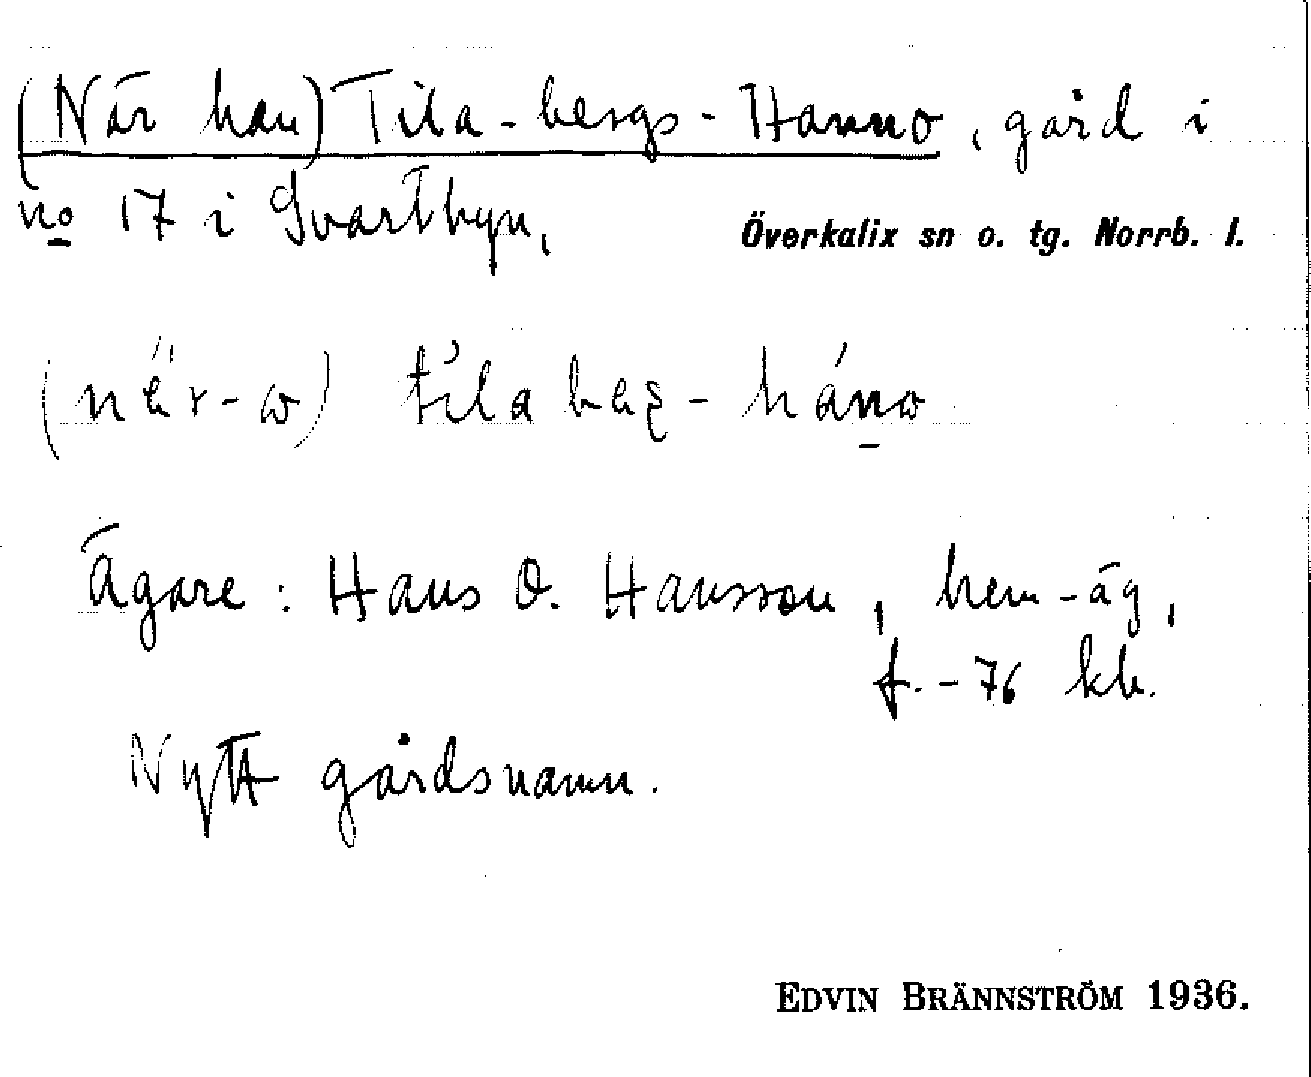 (När han) Tila-bergs-Hanno, gård i
no 17 i Svartbyn, Överkalix sn o. tg. Norrb. l.
Ägare: Hans O. Hansson, hem-äg,
f. -76 kb.
Nytt gårdsnamn.
EDVIN BRÄNNSTRÖM 1936.